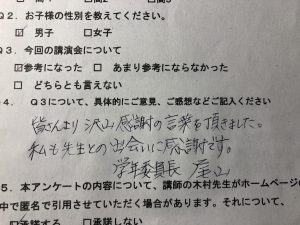 Q2．お子様の性別を教えてください。
☑ 男子　□女子
Q3．今回の講演会について
☑参考になった　□ あまり参考にならなかった
□ どちらとも言えない
4．　Q3について、具体的にご意見、ご感想などご記入ください
皆さんより 沢山 感謝の言葉を頂きました。
私も先生との出会いに感謝です。
学年委員長
5．本アンケートの内容について、講師の木村先生がホームページの
中で匿名で引用させていただく場合があります。それについて、
承諾する　□承諾しない